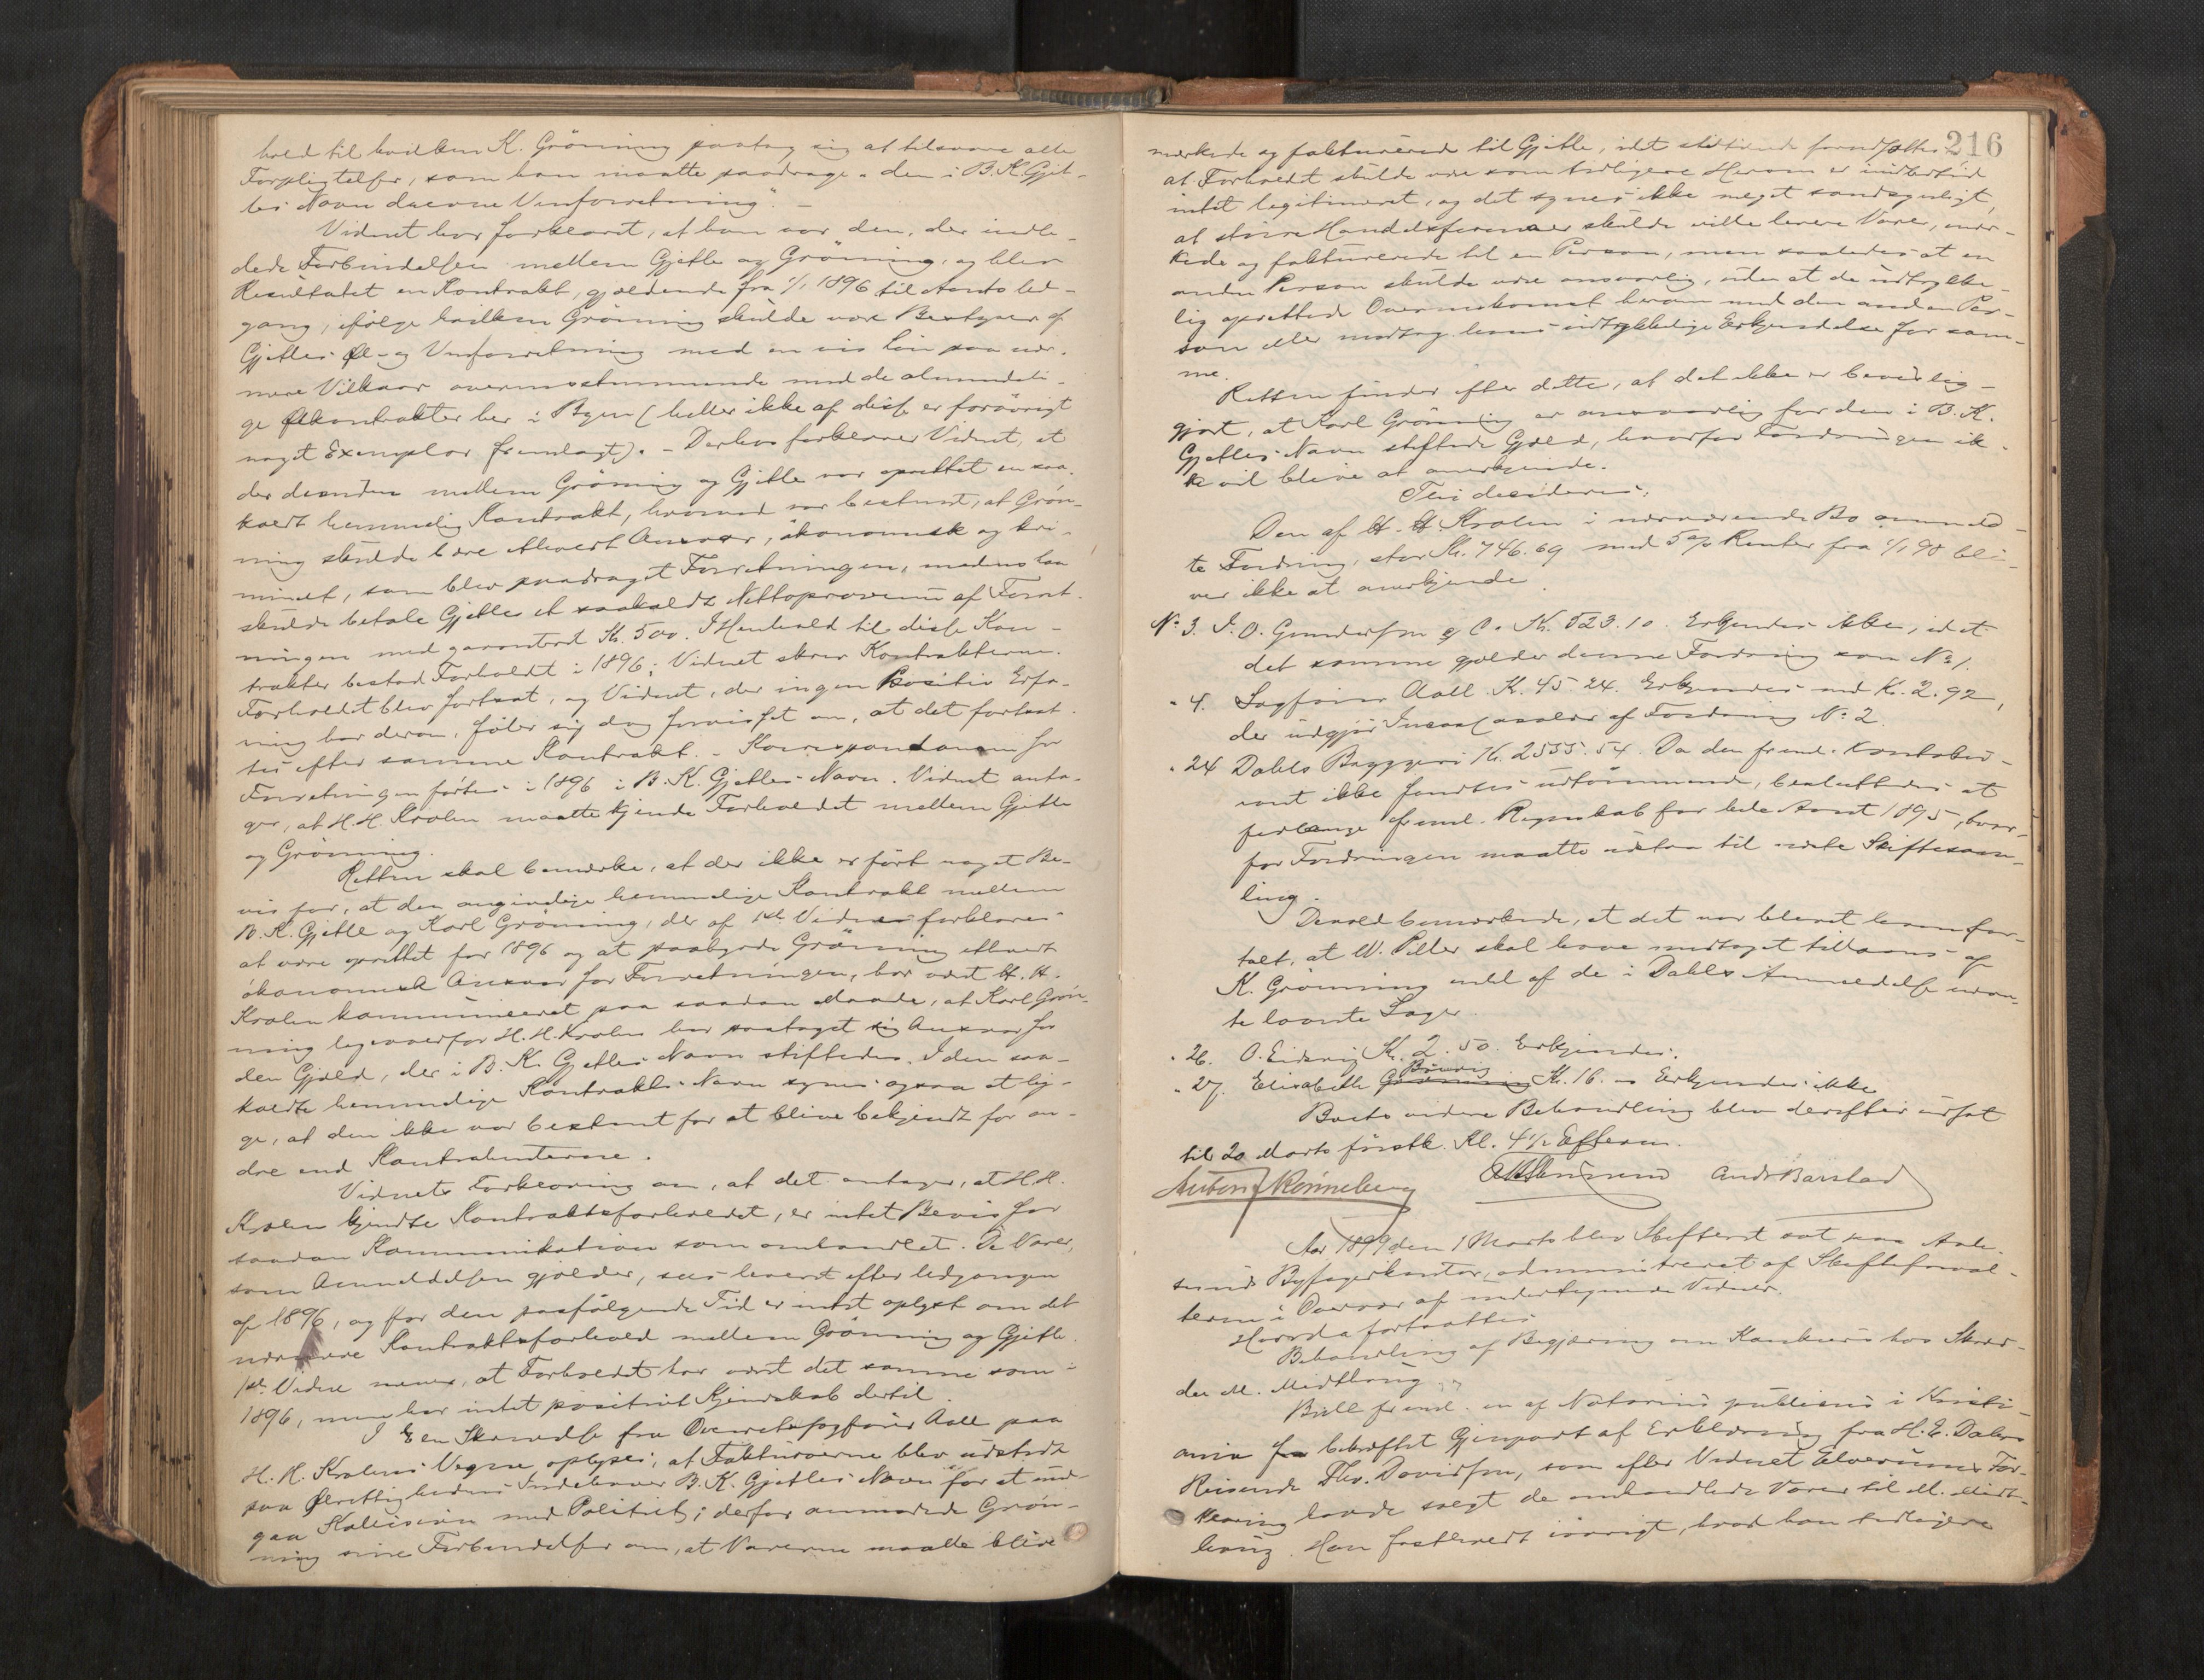 hold til hvilken K. Grönning paatog sig at tilsvare alle
Forpligtelser, som han maatte paadrage "den i B. K. Gjet-
les Navn drevne Vinforretning". –
Vidnet har forklaret, at han var den, der indle-
dede Forbindelsen mellem Gjetle og Grönning, og blev
Resultatet en Kontrakt, gjældende fra 1/1 1896 til Aarets Ud-
gang, ifölge hvilken Grönning skulde være Bestyrer af
Gjetles Øl- og Vinforretning med en vis Lön paa nær-
mere Vilkaar overensstemmende med de almindeli-
ge Ølkontrakter her i Byen (heller ikke af disse er forövrigt
noget Exemplar fremlagt). – Derhos forklarer Vidnet, at
der desuden mellem Grönning og Gjetle var oprettet en saa-
kaldt hemmelig Kontrakt, hvorved var bestemt, at Grön-
ning skulde bære ethvert Ansvar, ökonomisk og kri-
minelt, som blev paadraget Forretningen, medens han
skulde betale Gjetle et saakaldt Nettoprovenu af Forret-
ningen med garanteret Kr. 500. I Henhold til disse Kon-
trakter bestod Forholdet i 1896; Vidnet skrev Kontrakterne.
Forholdet blev fortsat, og Vidnet, der ingen Positiv Erfa-
ring har derom, föler sig dog forvisset om, at det fortsat-
tes efter samme Kontrakt. – Korrespondancen for
Forretningen förtes i 1896 i B. K. Gjetles Navn. Vidnet anta-
ger, at H. H. Krolen maatte kjende Forholdet mellem Gjetle
og Grönning.
Retten skal bemærke, at der ikke er fört noget Be-
vis for, at den angivelige hemmelige Kontrakt mellem
B. K. Gjetle og Karl Grönning, der af 1ste Vidne forklares
at være oprettet for 1896 og at paabyrde Grönning ethvert
ökonomisk Ansvar for Forretningen, har været H. H.
Krolen kommuniceret paa saadan Maade, at Karl Grön-
ning ligeoverfor H. H. Krolen har paataget sig Ansvar for
den Gjæld, der i B. K. Gjetles Navn stiftedes. I den saa-
kaldte hemmelige Kontrakts Navn synes ogsaa at lig-
ge, at den ikke var bestemt for at blive bekjendt for an-
dre end Kontrahenterne.
Vidnets Forklaring om, at det antager, at H. H.
Krolen kjendte Kontraktsforholdet, er intet Bevis for
saadan Kommunikation som omhandlet. De Varer,
som Anmeldelsen gjælder, sees leveret efter Udgangen
af 1896, og for den paafölgende Tid er intet oplyst om det
nærmere Kontraktsforhold mellem Grönning og Gjetle.
1ste Vidne mener, at Forholdet har været det samme som i
1896, men har intet positivt Kjendskab dertil.
I Een Skrivelse fra Overretssagförer Aall paa
H. H. Krolens Vegne oplyses, at Fakturaerne blev udstedt
paa Ølrettighedens Indehaver B. K. Gjetles Navn for at und-
gaa Kollision med Politiet; derfor anmodede Grön-
ning sine Forbindelser om, at Varerne maatte blive
216
mærkede og fakturerede til Gjetle, idet stiltiende forudsattes
at Forholdet skulde være som tidligere Herom er imidlertid
intet legitimeret, og det synes ikke meget sandsynligt,
at större Handelsfirmaer skulde ville levere Varer, mær-
kede og fakturerede til en Person, men saaledes at en
anden Person skulde være ansvarlig, uden at de udtrykke-
lig oprettede Overenskomst herom med den anden Per-
son eller modtog hans udtrykkelige Erkjendelse for sam-
me.
Retten finder efter dette, at det ikke er bevislig-
gjort, at Karl Grönning er ansvarlig for den i B. K.
Gjetles Navn stiftede Gjæld, hvorfor Fordringen ik-
ke vil blive at anerkjende.
Thi decideres:
Den af H. H. Krolen i nærværende Bo anmeld-
te Fordring, stor Kr. 746.69 med 5% Renter fra 1/1 98 bli-
ver ikke at anerkjende.
No 3. J. O. Gundersen & Co. Kr. 523.10. Erkjendes ikke, idet
det samme gjælder denne Fordring som No 1.
" 4. Sagförer Aall Kr. 45.24. Erkjendes med Kr. 2.92,
der udgjör Incassosalær af Fordring No 2.
" 24 Dahls Bryggeri Kr. 2535.54. Da den freml. Kontoku-
rant ikke fandtes udtömmende, besluttedes at
forlange freml. Regnskab for hele Aaret 1895, hvor-
for Fordringen maatte udstaa til næste Skiftesam-
ling.
Devold bemærkede, at det var blevet ham for-
talt, at W. Piller skal have modtaget tillaans af
K. Grönning endel af de i Dahls Anmeldelse næv-
te laante Sager.
" 26. O. Eidsvig Kr. 2.50. Erkjendes.
" 27. Elisabeth Brövig Kr. 16. – Erkjendes ikke
Boets videre Behandling blev derefter udsat
til 20 Marts förstk. Kl. 4 1/2 Efterm.
Anton J Rönneberg And Barstad
Aar 1899 den 1 Marts blev Skifteret sat paa Aale-
sunds Byfogedkontor, administreret af Skifteforval-
teren i Overvær af undertegnede Vidner.
Hvorda fortsattes
Behandling af Begjæring om Konkurs hos Skræd-
der M. Midthaug
Bull freml. en af Notarius publicus i Kristi-
ania bekræftet Gjenpart af Erklæring fra H. E. Dahls
Reisende Thv. Davidsen, som efter Vidnet Elverums For-
klaring havde solgt de omhandlede Varer til M. Midt-
haug. Han fastholdt iövrigt, hvad han tidligere